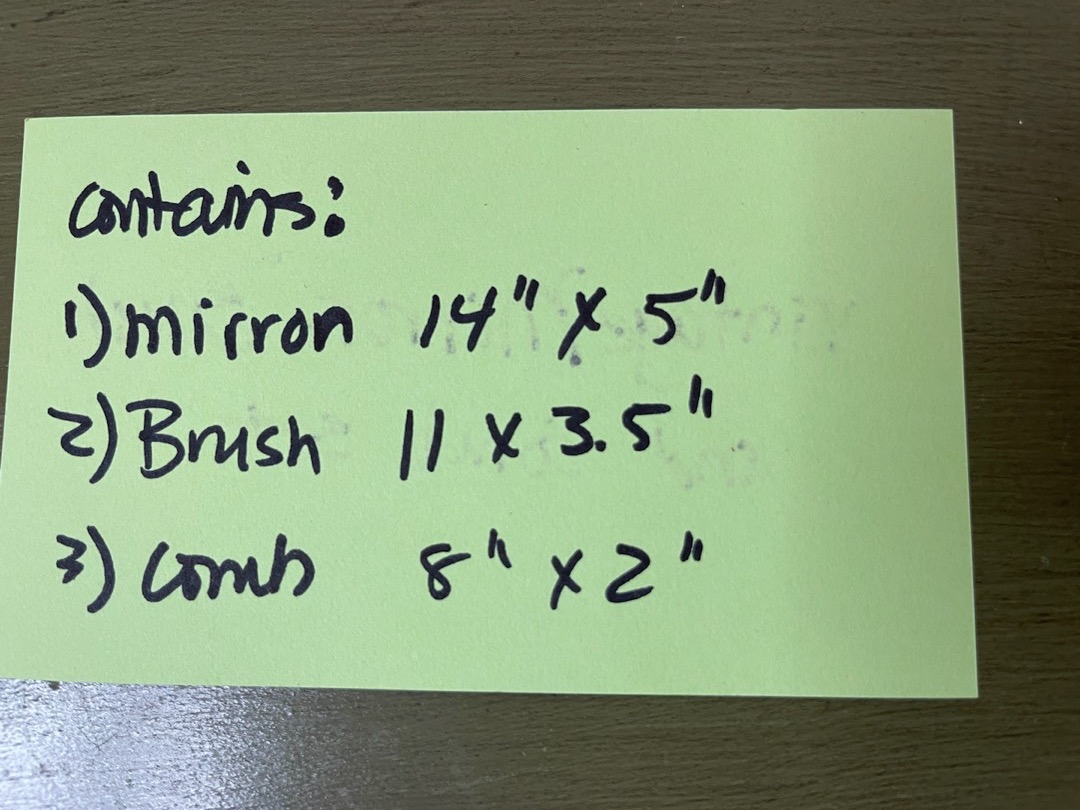 contains:
1) mirron 14" x 5"
2) Brush 11 x 3.5"
3) Comb 8" x 2"